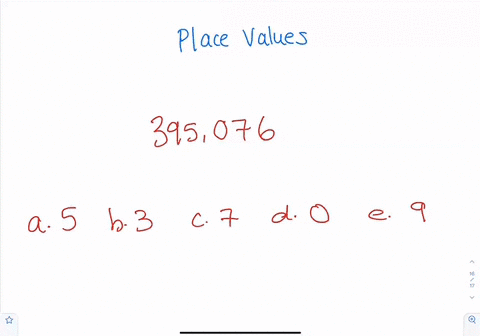 Place Values
395,076
a. 5 b. 3 c. 7 d. 0 e. 9